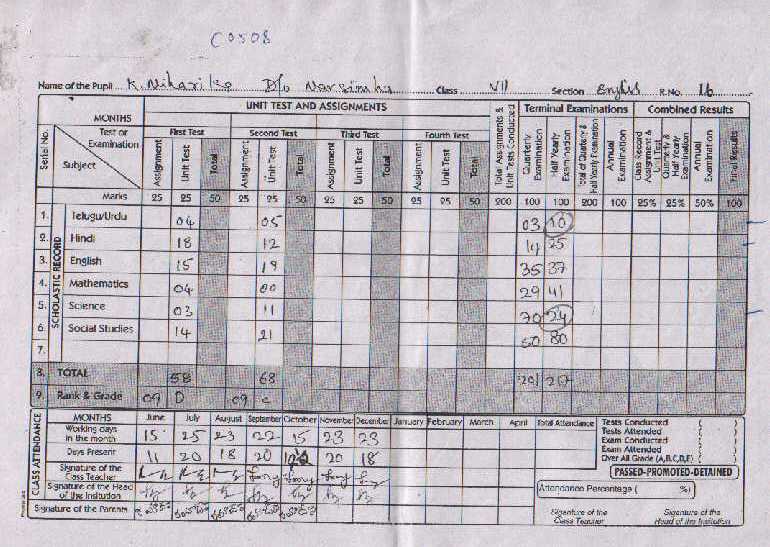 C0508
Name of the Pupil K. Niharika D/o Narsimha Class VII Section English R.No. 16
MONTHS UNIT TEST AND ASSIGNMENTS Total Assignments & Unit Tests Conducted Terminal Examinations Combined Results
Serial No. Test or Examination Subject First Test Second Test Third Test Fourth Test
Assignment Unit Test Total Assignment Unit Test Total Assignment Unit Test Total Assignment Unit Test Total Quarterly Examination Half Yearly Examination Total of Quarterly & Half Yearly Examination Annual Examination Class Record Assignment & Unit Test Quarterly & Half Yearly Examination Annual Examination Final Results
Marks 25 25 50 25 25 50 25 25 50 25 25 50 200 100 100 200 100 25% 25% 50% 100
SCHOLASTIC RECORD
1. Telugu/Urdu 04 05 03 10
2. Hindi 18 12 14 25
3. English 15 19 35 37
4. Mathematics 04 00 29 41
5. Science 03 11 70 24
6. Social Studies 14 21 50 80
7.
8. TOTAL 58 68
9. Rank & Grade 09 D 09 C
CLASS ATTENDANCE
MONTHS June July August September October November December January February March April Total Attendance
Working days in the month 15 25 23 22 15 23 23
Days Present 11 20 18 20 20 18
Signature of the Class Teacher
Signature of the Head of the Insitution
Signature of the Parents
Tests Conducted ( )
Tests Attended ( )
Exam Conducted ( )
Exam Attended ( )
Over All Grade (A,B,C,D,E) ( )
PASSED-PROMOTED-DETAINED
Attendance Percentage ( %)
Signature of the Class Teacher Signature of the Head of the Institution